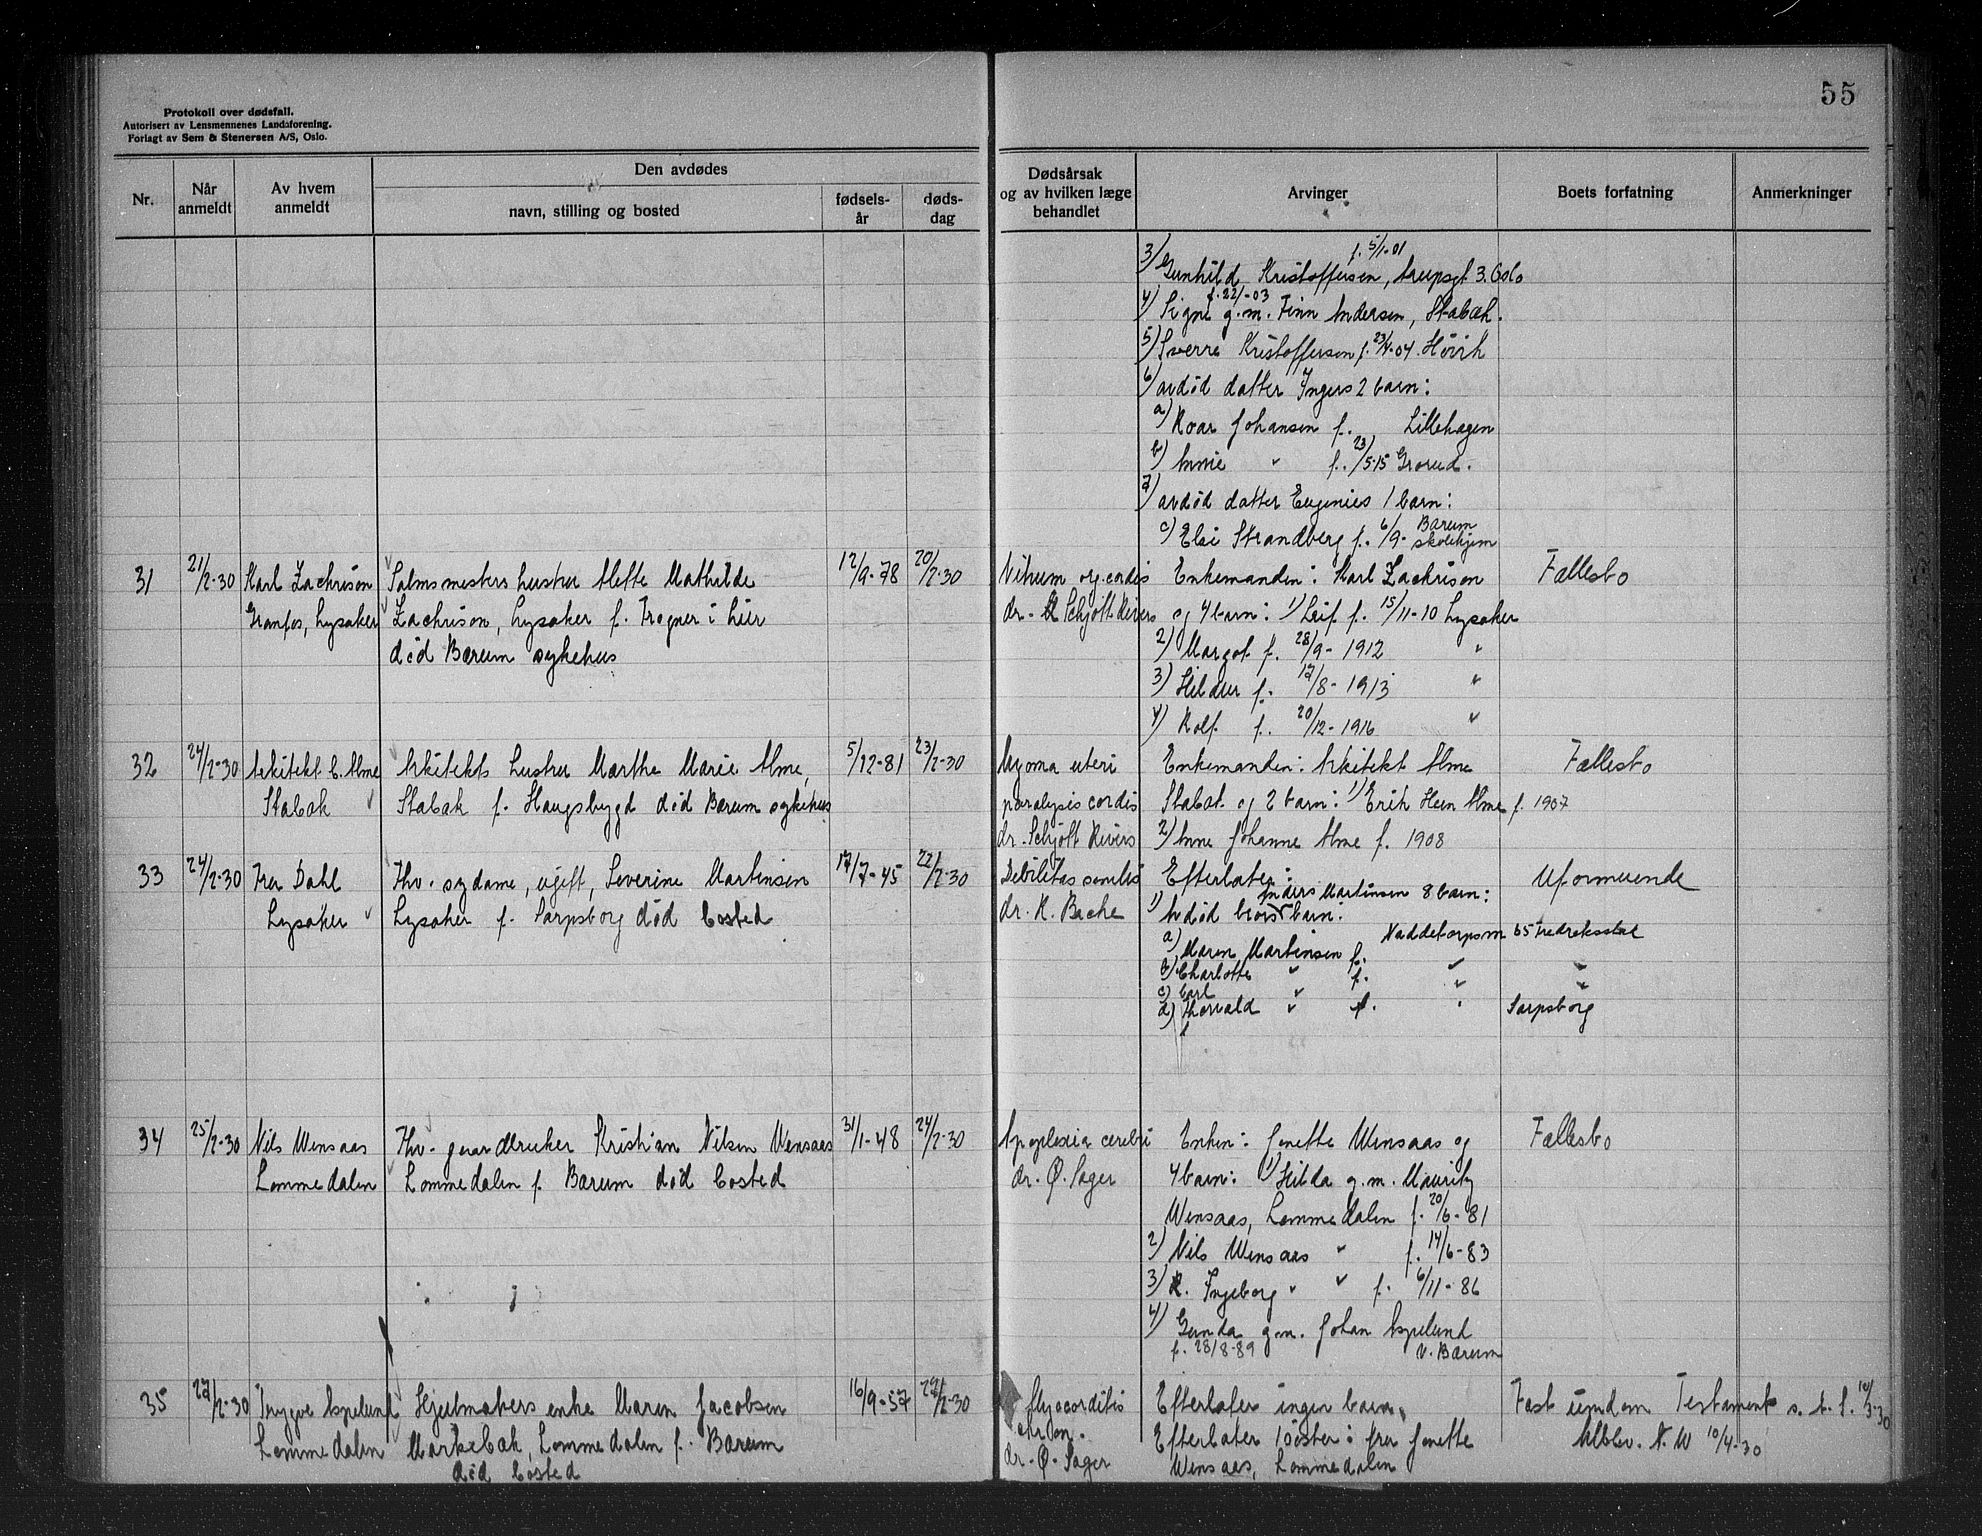 55
Protokoll over dødsfall.
Autorisert av Lensmennenes Landsforening.
Forlagt av Sem & Stenersen A/S, Oslo.
Nr.
Når anmeldt
Av hvem anmeldt
Den avdødes
navn, stilling og bosted
fødsels-år
døds-dag
Dødsårsak og av hvilken læge behandlet
Arvinger
Boets forfatning
Anmerkninger
f. 5/1-01
3) Gunhild Kristoffersen, 3. Oslo
f. 22/-03
4) Signe g.m. Finn Andersen, Stabæk.
5) Sverre Kristoffersen f. 23/4-04. Høvik
6) avdød datter Ingers 2 barn:
a) Roar Johansen f. Lillehagen
b) Annie " f. 23/5-15 Grorud.
7) avdød datter Eugenies 1 barn:
c) Elsi Strandberg f. 6/9- Bærum skolehjem
31
21/2-30
Karl Zachrison
Granfos, Lysaker
Salmsmesters hustru Mette Mathilde
Zachrison, Lysaker f. Trogner i Lier
død Bærum sykehus
12/9-78
20/2-30
Vitium og. cordis
dr. Schjøtt Rivers
Enkemanden: Karl Zachrison
og 4 barn: 1) Leif f. 15/11-10 Lysaker
2) Margot f. 28/9-1912 "
3) Hildur f. 17/8-1913 "
4) Rolf f. 20/12-1916 "
Fællesbo
32
24/2-30
Arkitekt C. Alme
Stabæk
Arkitekts hustru Marthe Marie Alme,
Stabæk f. Haugsbygd død Bærum sykehus
5/12-81
23/2-30
Myoma uteri
paralysis cordis
dr. Schjøtt Rivers
Enkemanden: Arkitekt Alme
Stabæk og 2 barn: 1) Erik Hein Alme f. 1907
2) Anne Johanne Alme f. 1908
Fællesbo
33
24/2-30
Fru Dahl
Lysaker
Fhv. sydame, ugift, Severine Martinsen
Lysaker f. Sarpsborg død bosted
17/7-45
22/2-30
Debilitas senilis
dr. K. Bache
Efterlater:
Anders Martinsen 8 barn:
1) Avdød brors barn.
a) Maren Martinsen f. 65 Fredrikstad
b) Charlotte " f. " "
c) Carl " " "
d) Thorvald " f. " Sarpsborg
Uformuende
34
25/2-30
Nils Wensaas
Lommedalen
Fhv. gaardbruker Kristian Nilsen Wensaas
Lommedalen f. Bærum død bosted
31/1-48
24/2-30
Apoplexia cerebri
dr. Ø. Sager
Enken: Jenette Wensaas og
4 barn: 1) Hilda g.m. Mauritz
Wensaas, Lommedalen f. 20/6-81
2) Nils Wensaas " f. 14/6-83
3) K. Ingeborg " " f. 6/11-86
4) Gunda g.m. Johan Aspelund
f. 28/8-89 V. Bærum
Fællesbo
35
27/2-30
Trygve Aspelund
Lommedalen
Hjulmakers enke Maren Jacobsen
Markebæk, Lommedalen f. Bærum
død bosted
16/9-57
27/2-30
Myocarditis
chron.
dr. Ø. Sager
Efterlater ingen barn.
Efterlater 1 søster: fru Jenette
Wensaas, Lommedalen
Fast eiendom Testament s.t.s. 10/3-30
Utblev. N.W 10/4-30